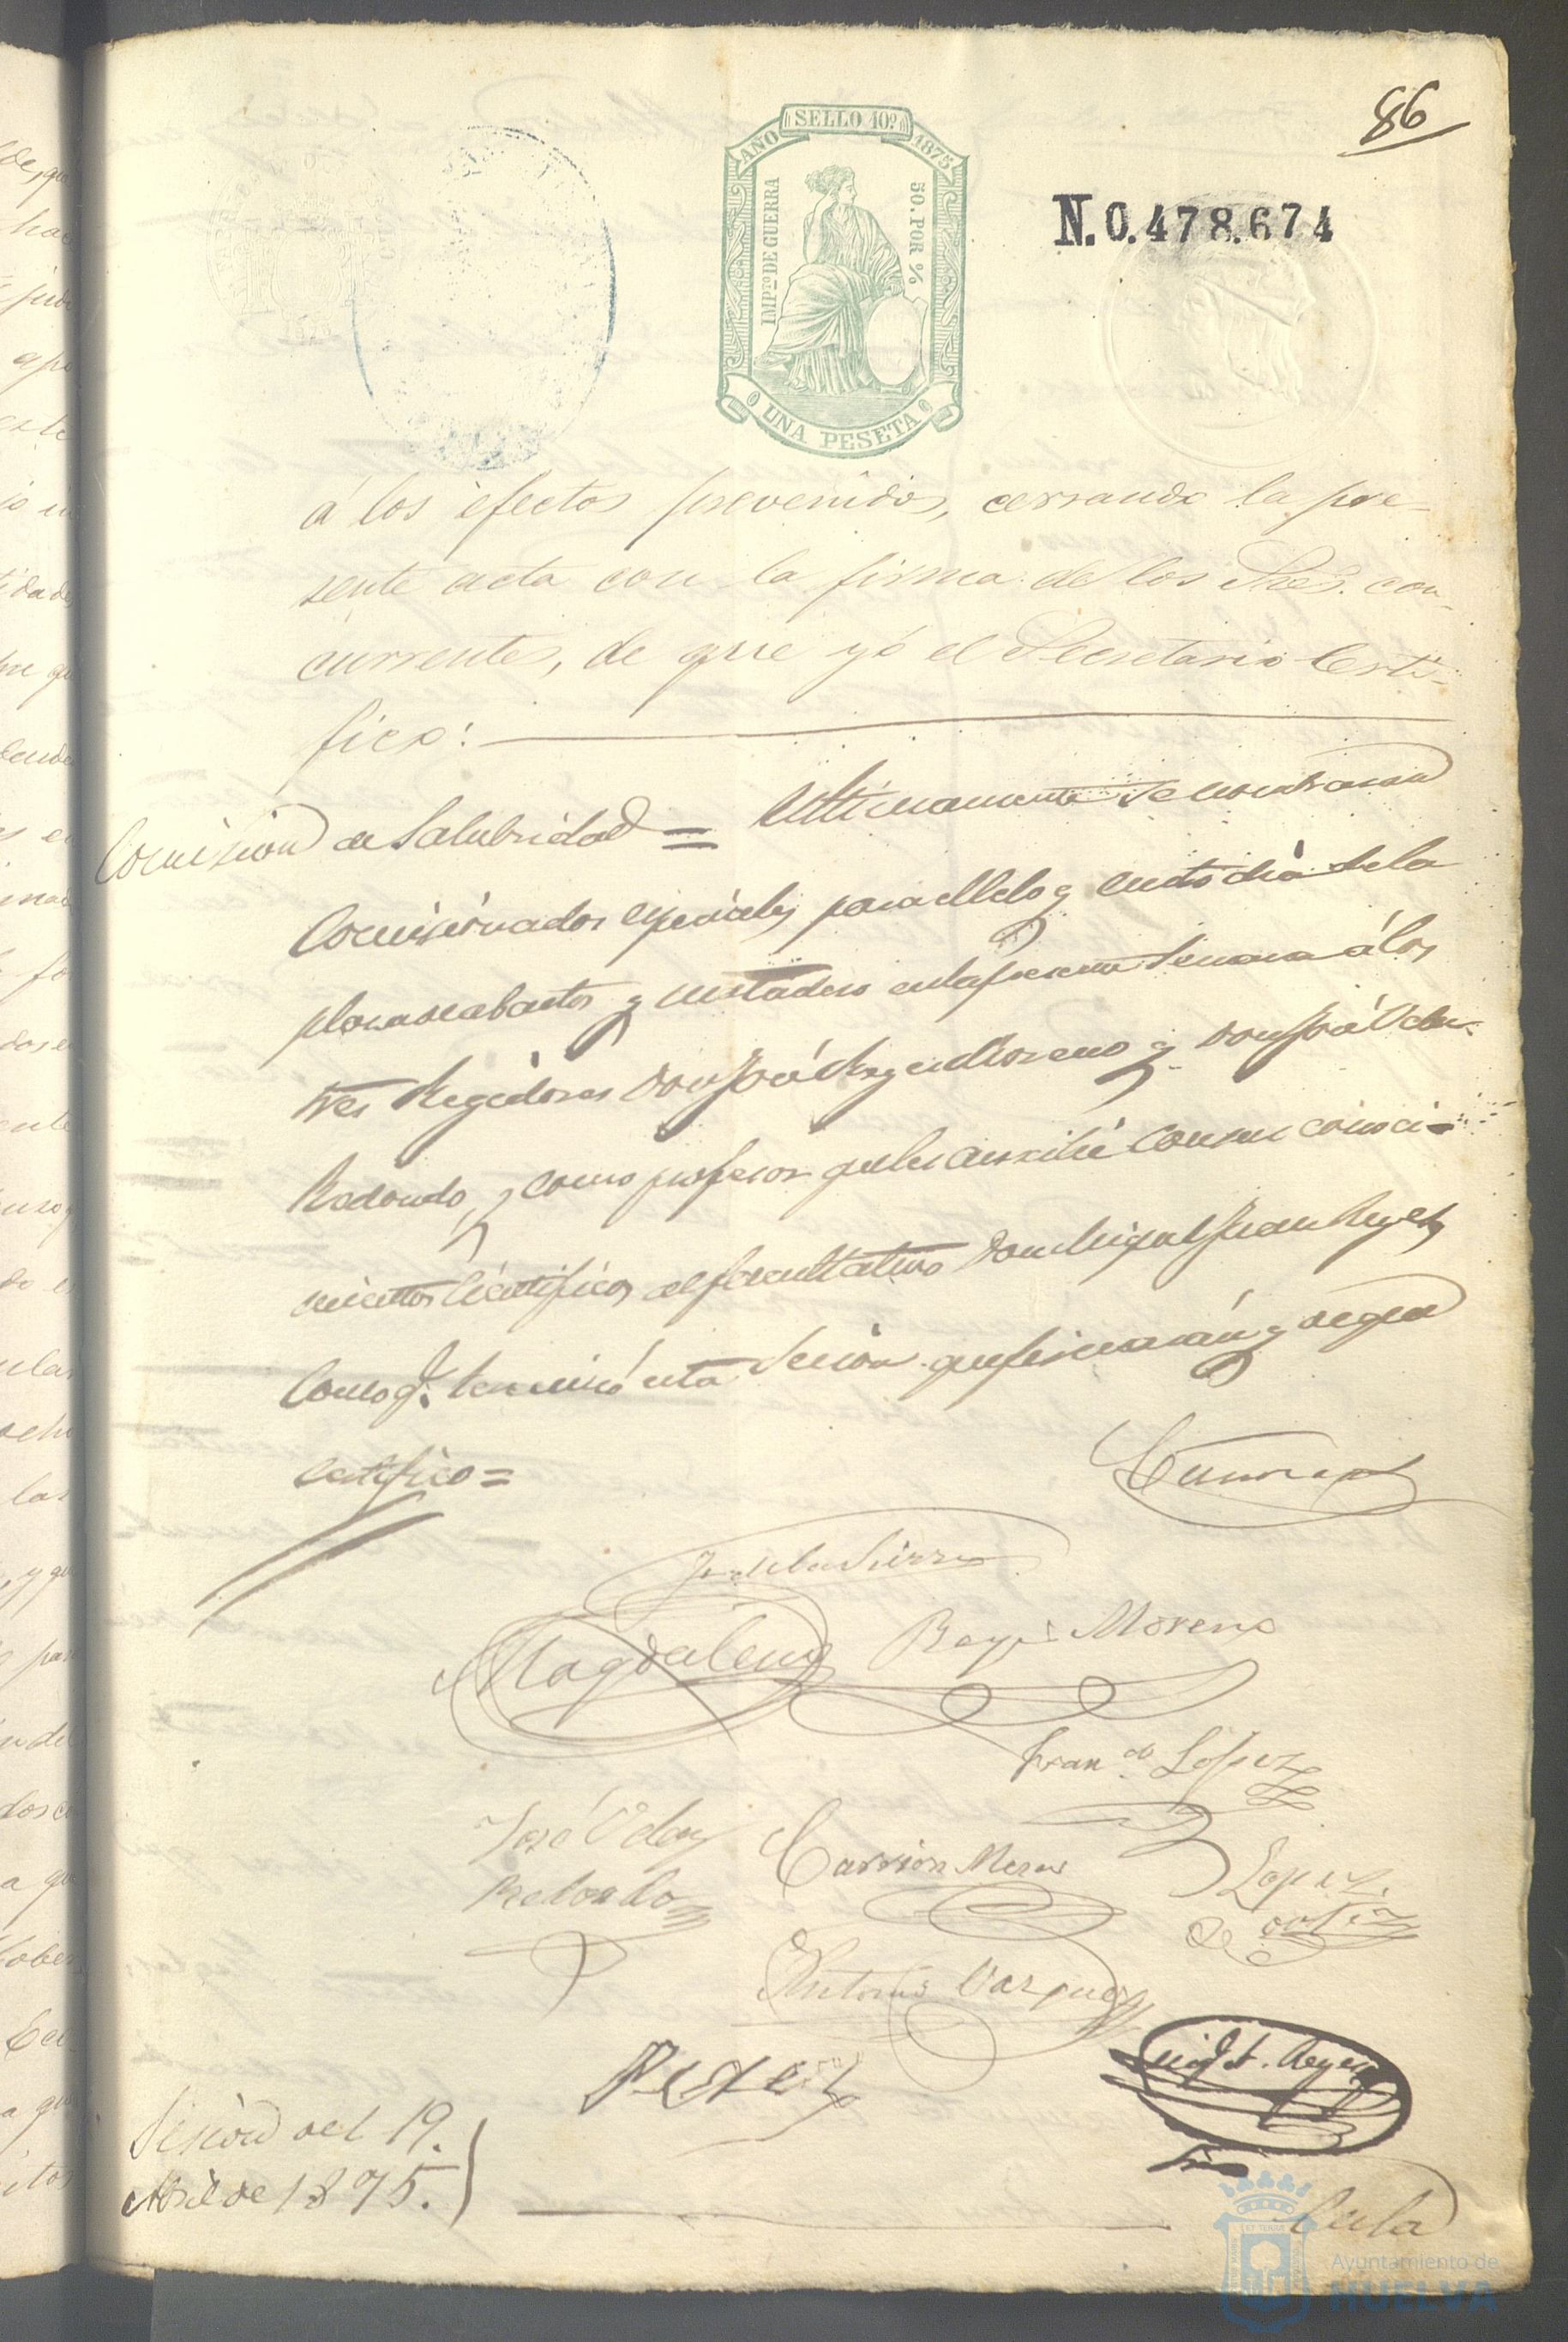 86
SELLO 10º
AÑO 1875
IMPTO DE GUERRA
50. POR %
UNA PESETA
N.0.478.674
á los efectos prevenidos, cerrando la pre-
sente acta con la firma de los Sres. con-
currentes, de que yó el Secretario Certi-
fico:
Comision de Salubridad = Ultimamente se nombraron
Comisionados especiales para el celo y custodia de la
plaza de abastos y matadero en la presente semana á los
tres Regidores Don José Reyes Moreno y Don José Velez
Redondo, y como profesor que les auxilie con sus conoci-
mientos cientificos al facultativo Don Miguel Juan Reyes
Con lo q. terminó esta Sesion que firmarán y de que
certifico =
José de la Sierra
Magdalena Reyes Moreno
Fran.co López
José Velez
Redondo
Carrion Meras
Lopez
de Ortiz
Antonio Vazquez
Perez
Sesion del 19.
Abril de 1875.
En la
Ayuntamiento de
HUELVA